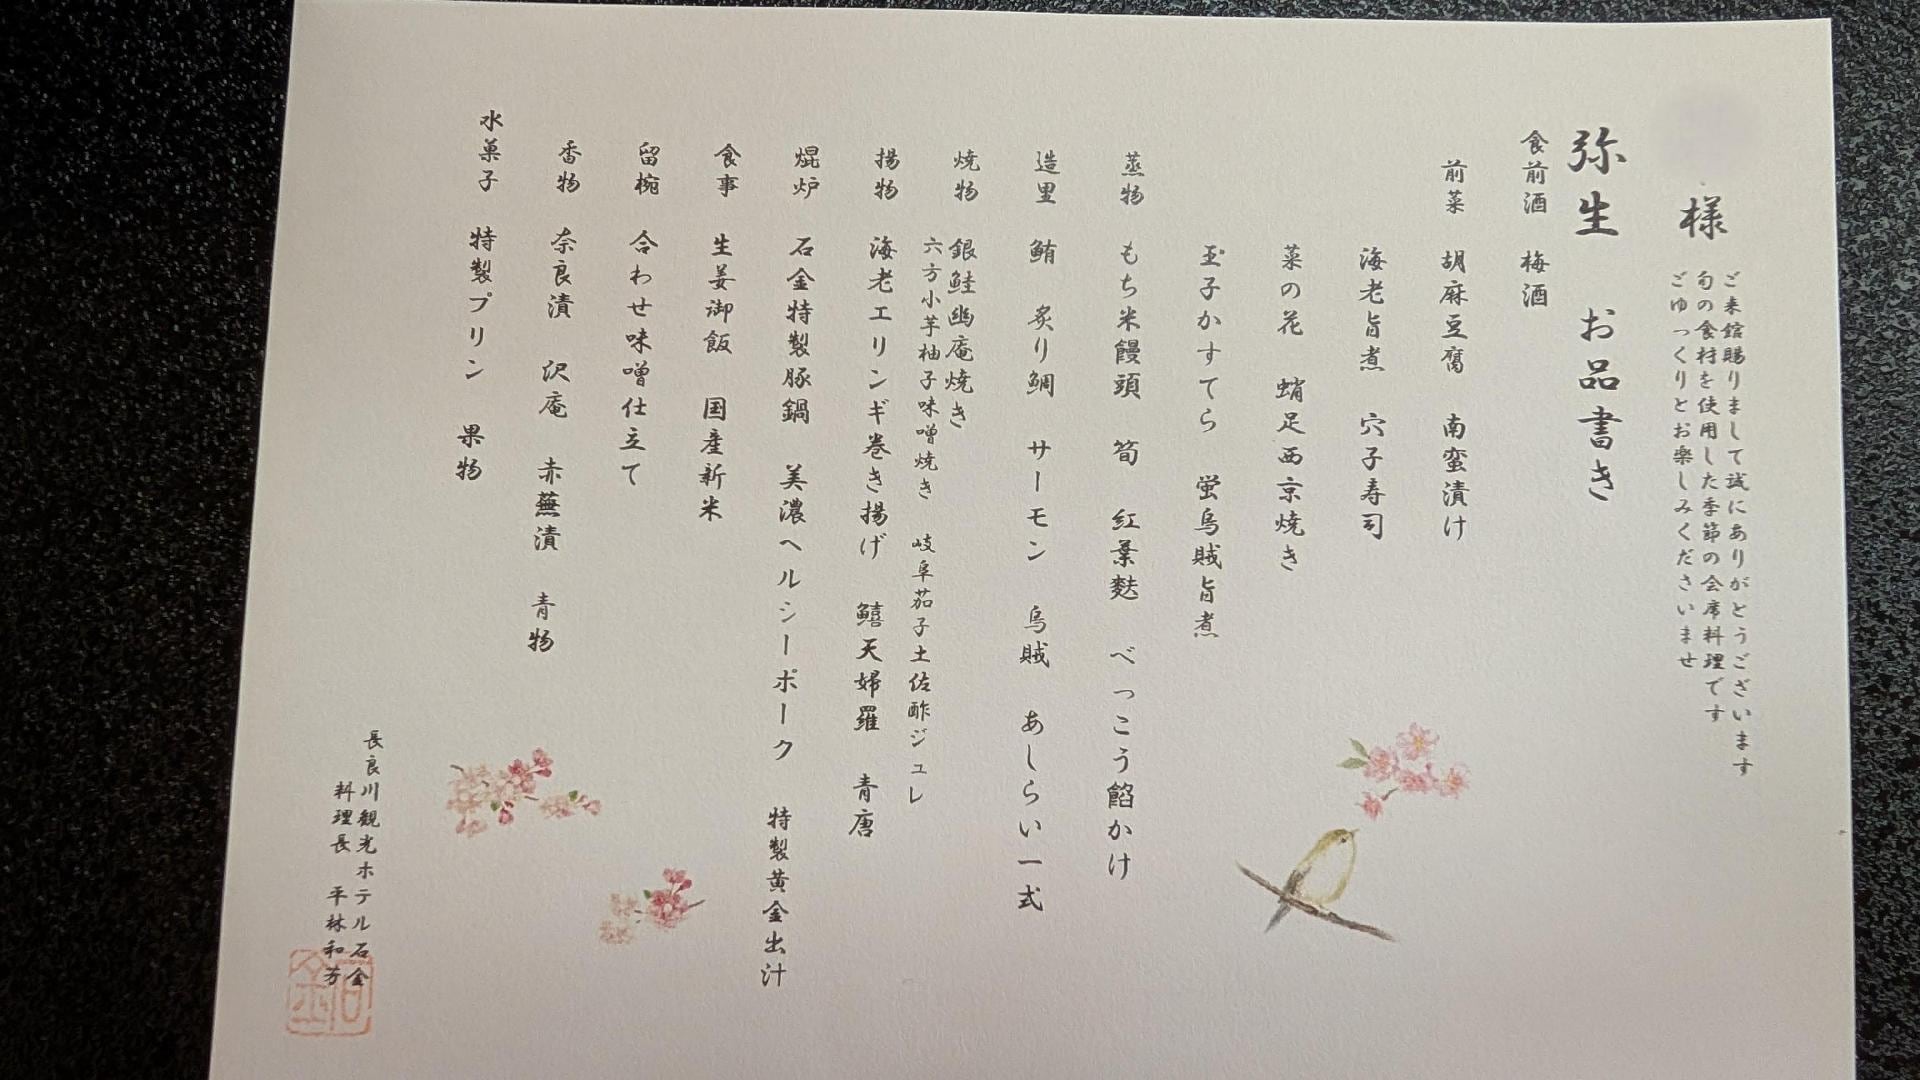 様
ご来館賜りまして誠にありがとうございます
旬の食材を使用した季節の会席料理です
ごゆっくりとお楽しみくださいませ
弥生 お品書き
食前酒 梅酒
前菜 胡麻豆腐 南蛮漬け
海老旨煮 穴子寿司
菜の花 蛸足西京焼き
玉子かすてら 蛍烏賊旨煮
蒸物 もち米饅頭 筍 紅葉麩 べっこう餡かけ
造里 鮪 炙り鯛 サーモン 烏賊 あしらい一式
焼物 銀鮭幽庵焼き
六方小芋柚子味噌焼き 岐阜茄子土佐酢ジュレ
揚物 海老エリンギ巻き揚げ 鱚天婦羅 青唐
焜炉 石金特製豚鍋 美濃ヘルシーポーク 特製黄金出汁
食事 生姜御飯 国産新米
留椀 合わせ味噌仕立て
香物 奈良漬 沢庵 赤蕪漬 青物
水菓子 特製プリン 果物
長良川観光ホテル石金
料理長 平林和芳
石金